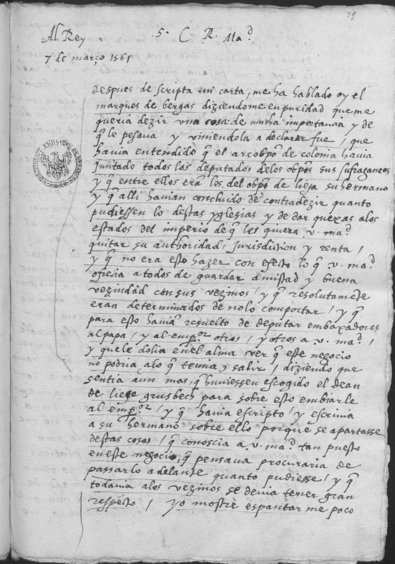 79
Al Rey
S. C. R. Ma.d
7 de março 1561
despues de scripta mi carta, me ha hablado oy el
marques de bergas diziendome en puridad que me
queria dezir una cosa de mucha importancia y de
q̃ le pesava y viniendola a declarar fue, que
havia entendido q̃ el arçobpo de colonia havia
juntado todos los deputados de los obpos sus sufraganeos
y q̃ entre ellos eran los del obpo de lieja su hermano
y q̃ alli havian concluido de contradezir quanto
pudiessen lo destas yglesias y de dar quexas a los
estados del imperio de q̃ les quiera v. ma.d
quitar su authoridad, jurisdicion y renta,
y q̃ no era esto hazer con efecto lo q̃ v. ma.d
ofrecia a todos de guardar amistad y buena
vezindad con sus vezinos, y q̃ resolutamēte
eran determinados de no lo comportar, y q̃
para esto havia resuelto de deputar embaxadores
al papa, y al emp.or otros, y otros a v. ma.d,
y que le dolia en el alma ver q̃ este negocio
no podria al q̃ temia, salir, diziendo que
sentia aun mas q̃ huviessen escogido el dean
de liege grusbech para sobre esto embiarle
al emp.or, y q̃ havia escripto, y escrivia
a su hermano sobre ello porque se apartasse
destas cosas, q̃ conoscia a v. ma.d tan puesto
en este negocio, q̃ pensava procuraria de
passarlo adelante quanto pudiesse, y q̃
todavia a los vezinos se devia tener gran
respecto, yo mostre espantarme poco